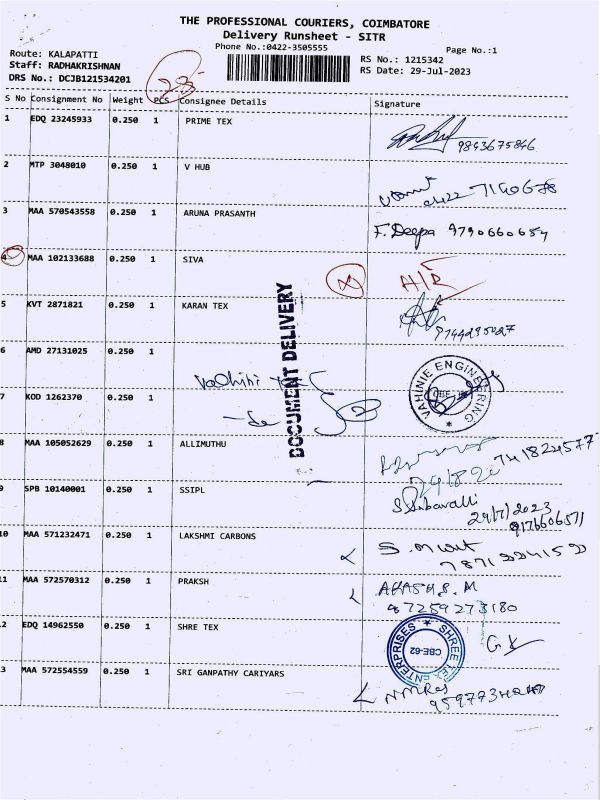 THE PROFESSIONAL COURIERS, COIMBATORE
Delivery Runsheet - SITR
Phone No.:0422-3505555
Page No.:1
Route: KALAPATTI
Staff: RADHAKRISHNAN
DRS No.: DCJB121534201
RS No.: 1215342
RS Date: 29-Jul-2023
23
S No Consignment No Weight PCS Consignee Details Signature
1 EDQ 23245933 0.250 1 PRIME TEX
9843675846
2 MTP 3048010 0.250 1 V HUB
0422 7140678
3 MAA 570543558 0.250 1 ARUNA PRASANTH
F. Deepa 9790660654
4 MAA 102133688 0.250 1 SIVA
5 KVT 2871821 0.250 1 KARAN TEX
DOCUMENT DELIVERY
6 AMD 27131025 0.250 1
VAHINIE ENGINEERING
7 KOD 1262370 0.250 1
8 MAA 105052629 0.250 1 ALLIMUTHU
741824577
9 SPB 10140001 0.250 1 SSIPL
29/7/2023
10 MAA 571232471 0.250 1 LAKSHMI CARBONS
11 MAA 572570312 0.250 1 PRAKSH
AKASH S. M
87259273180
2 EDQ 14962550 0.250 1 SHRE TEX
SHREE TEX ENTERPRISES
CBE-62
3 MAA 572554559 0.250 1 SRI GANPATHY CARIYARS